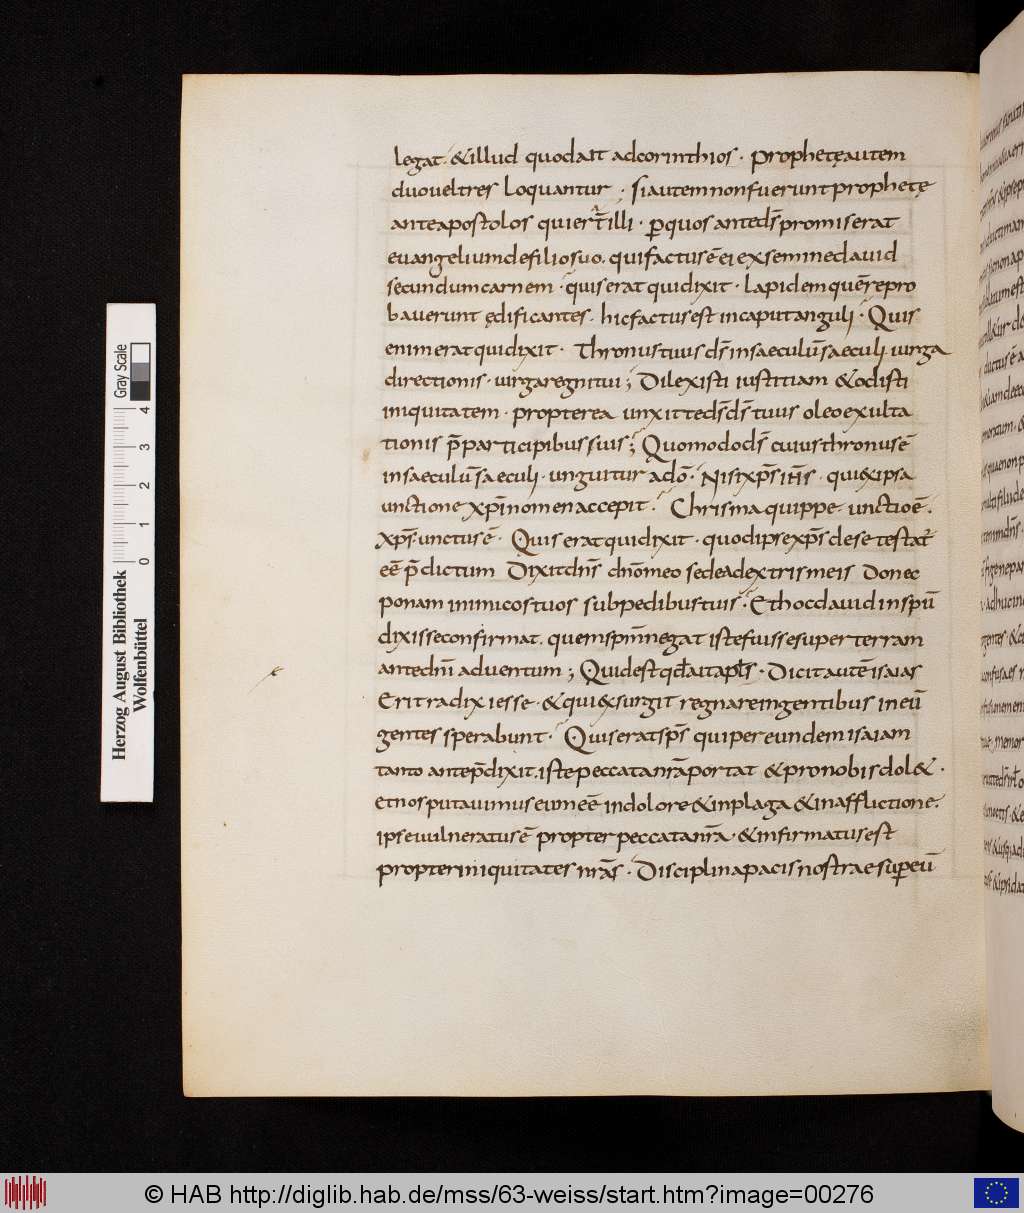 legat. & illud quod ait ad corinthios · prophetę autem
duo vel tres loquantur · si autem non fuerunt prophetę
ante apostolos qui er̄t illi · p̱ quos ante ds̄ promiserat
evangelium de filio suo. qui factus ē ei ex semine david
secundum carnem · quis erat qui dixit · lapidem quē repro
baverunt ędificantes. hic factus est in caput anguli · Quis
enim erat qui dixit · Thronus tuus ds̄ in saeculū saeculi uirga
directionis · uirga regni tui ; Dilexisti iustitiam & odisti
iniquitatem · propterea unxit te ds̄ ds̄ tuus oleo exulta
tionis p̄ participibus suis ; Quomodo ds̄ cuius thronus ē
in saeculū saeculi · unguitur a dō · Nisi xp̄s ih̄s · qui & ipsa
unctione xp̄i nomen accepit · Chrisma quippe unctio ē.
xp̄s · unctus ē · Quis erat qui dixit · quod ipse xp̄s de se testat̄
eē p̄dictum Dixit dn̄s dn̄o meo sede a dextris meis Donec
ponam inimicos tuos sub pedibus tuis · Et hoc david in spū
dixisse confirmat. quem ipsm̄ negat iste fuisse super terram
ante dn̄i adventum ; Quid est qd̄ ait apl̄s · Dicit autē isaias
Erit radix iesse · & qui exsurgit regnare in gentibus in eū
gentes sperabunt · Quis erat sps̄ qui per eundem isaiam
tanto ante p̄dixit. iste peccata nr̄a portat & pro nobis dol& ·
et nos putavimus eum eē in dolore & in plaga & in afflictione.
ipse vulneratus ē propter peccata nr̄a · & infirmatus est
propter iniquitates nr̄as · Disciplina pacis nostrae super eū
Gray Scale
4
3
2
1
0
Herzog August Bibliothek
Wolfenbüttel
© HAB http://diglib.hab.de/mss/63-weiss/start.htm?image=00276